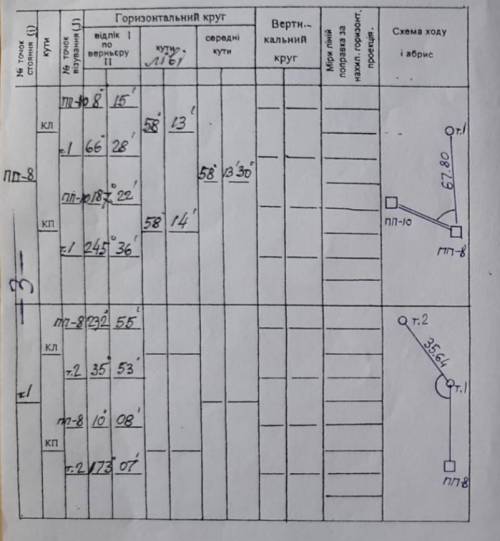 Горизонтальний круг
Верти-
кальний
круг
Схема ходу
і абрис
№ точок
стояння (i)
кути
№ точок
візування (J)
відлік I
по
верньєру
II
кути
ліві
середні
кути
Міри ліній
поправка за
нахил. горизонт.
проекція.
ПП-10 8° 15'
КЛ 58° 13'
т.1 66° 28'
ПП-8 58° 13' 30"
ПП-10 187° 22'
КП 58° 14'
т.1 245° 36'
т.1
67.80
ПП-10
ПП-8
—3—
ПП-8 232° 55'
КЛ
т.2 35° 53'
т.1
ПП-8 10° 08'
КП
т.2 173° 07'
т.2
35.64
т.1
ПП-8